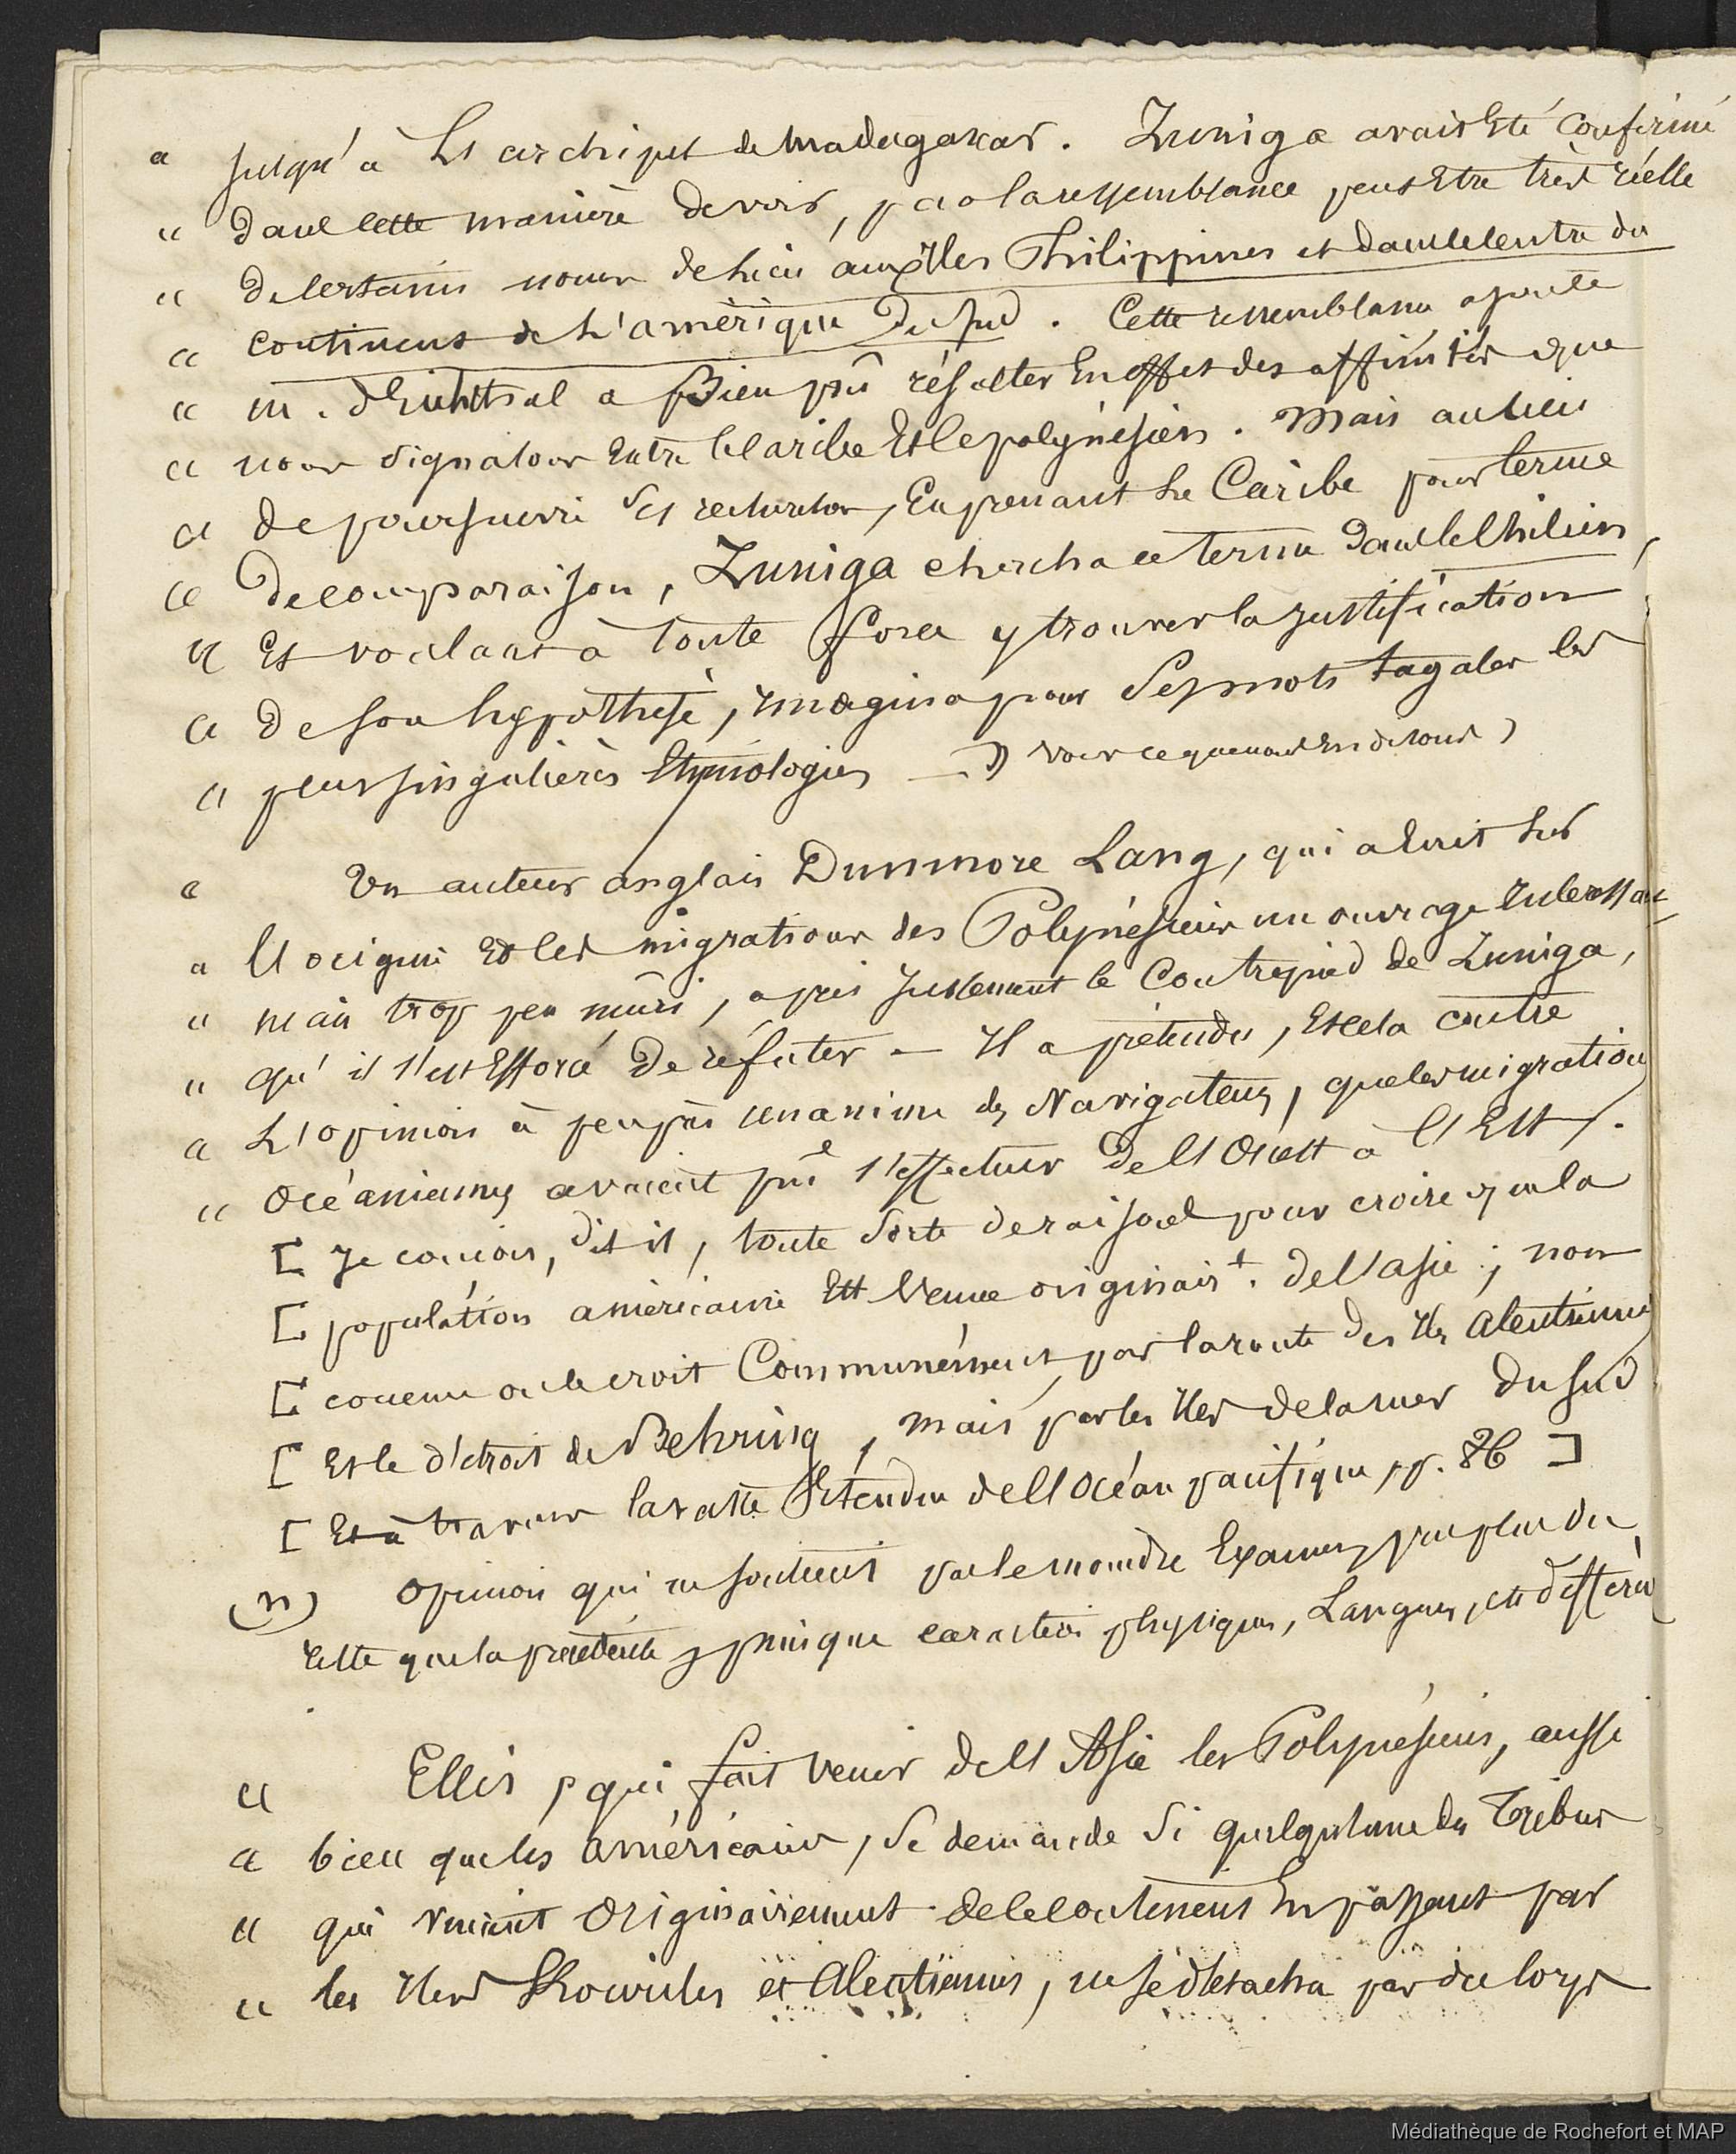 « jusqu'à l'archipel de Madagaxar. Zuniga avait été confirmé
« dans cette manière de voir, par la ressemblance peut être très réelle
« de certains noms de lieu aux Iles Philippines et dans le centre du
« continent de l'amérique du sud. Cette ressemblance ajoute
« M. d'Eichtal a Bien pû résulter En effet des affinités que
« nous signalons Entre le Caribe Et le polynésien. Mais au lieu
« de poursuivre ses recherches, En prenant le Caribe pour terme
« de comparaison, Zuniga chercha ce terme dans le Chilien,
« Et voulant à toute force y trouver la justification
« de son hypothèse, imagina pour ses mots tagales les
« plus singulières Etymologies — » voir ce que nous En disons )
« Un auteur anglais Dunmore Lang, qui a Ecrit sur
« l'origine Et les migrations des Polynésiens un ouvrage Interessant
« mais trop peu mûri, a pris justement le Contrepied de Zuniga,
« qu'il s'est Efforcé De réfuter — Il a prétendu, Et cela contre
« L'opinion à peu près unanime des Navigateurs, que les migrations
« Océaniennes avaient pû s'effectuer De l'Ouest à l'Est.
[ Je conçois, dit il, toute sorte de raisons pour croire que la
[ population américaine Est Venue originairt. de l'asie ; non
[ comme on le croit Communément par la route des Iles Aleutiennes
[ Et le détroit de Behring, mais par les Iles de la mer du Sud
[ Et à travers la vaste Etendue de l'Océan pacifique, p. 86 ]
(n) Opinion qui ne soutient pas le moindre Examen, pas plus du
reste que la précédente, puisque caractères physiques, Langues, etc diffèrent
« Ellis, qui fait Venir de l'Asie les Polynésiens, aussi
« bien que les américains, se demande si quelqu'une des Tribus
« qui vinrent Originairement de ce continent En passant par
« les Iles Kouriles et Aleutiennes, ne se détacha pas du corps
Médiathèque de Rochefort et MAP